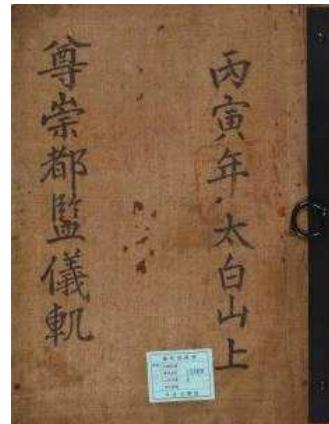 丙寅年 太白山上
尊崇都監儀軌